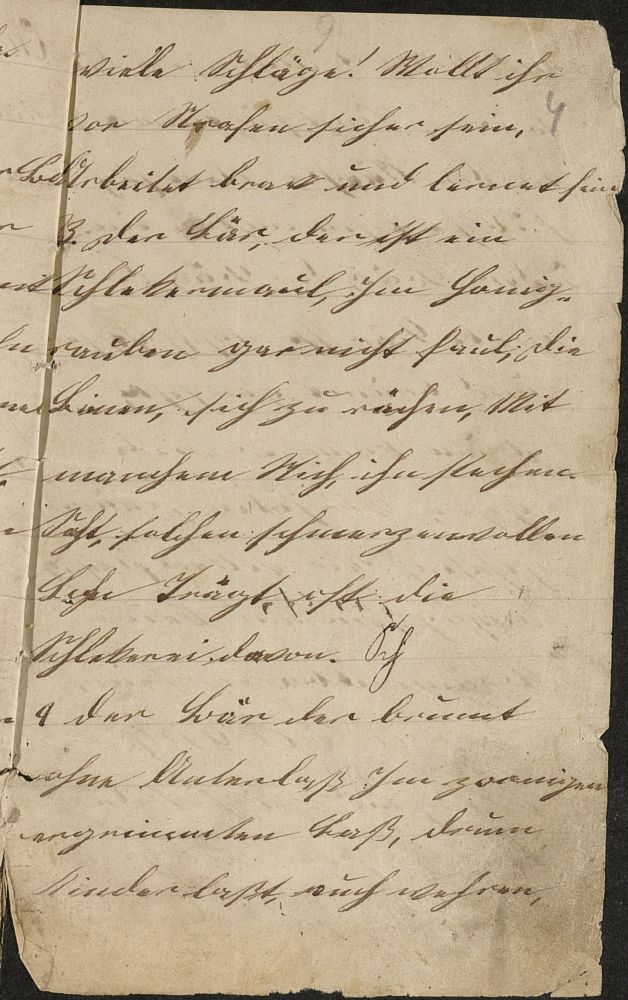 viele Schläge! Wollt ihr
4
vor Strafen sicher sein,
Arbeitet brav und lernet fein
3. Der Bär, der ist ein
Schlekermaul, Im Honig-
rauben gar nicht faul; Die
Binen, sich zu rächen, Mit
manchem Stich ihn stechen.
Seht, solchen schmerzenvollen
Lohn Trägt oft die
Schlekerei davon.
4 Der Bär der brumt
ohne Unterlaß Im zornigen
ergrimmten Baß, drum
Kinder laßt euch wehren,